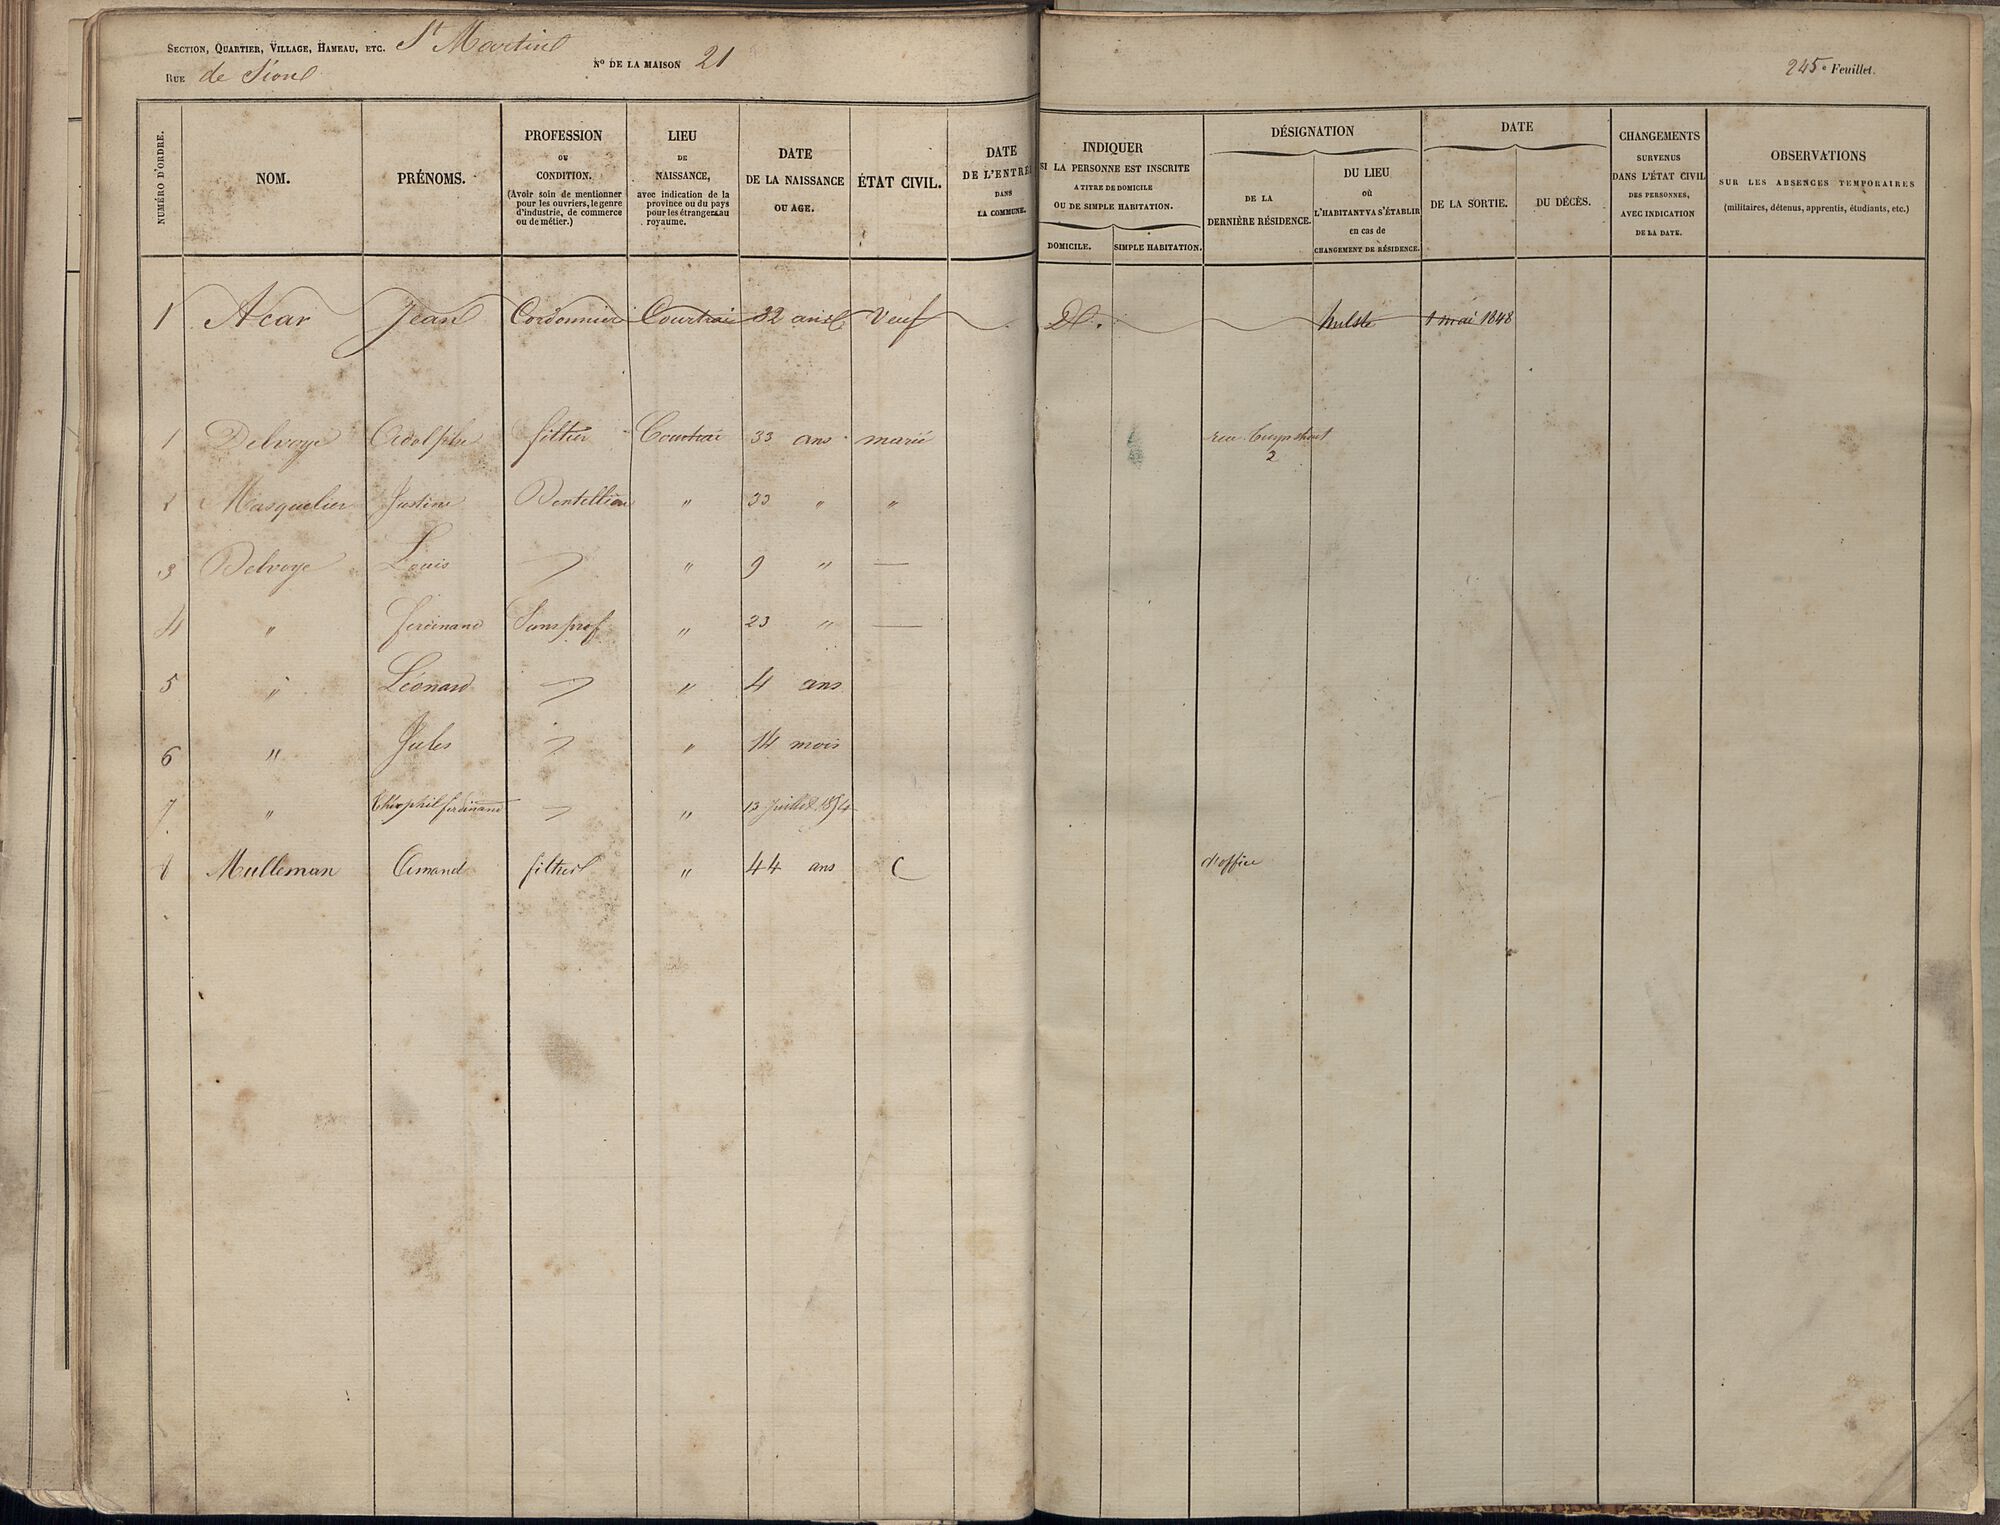 SECTION, QUARTIER, VILLAGE, HAMEAU, ETC. St Martin
RUE de Sion
No DE LA MAISON 21
245e Feuillet.
NUMÉRO D'ORDRE.
NOM.
PRÉNOMS.
PROFESSION
OU
CONDITION.
(Avoir soin de mentionner
pour les ouvriers, le genre
d'industrie, de commerce
ou de métier.)
LIEU
DE
NAISSANCE,
avec indication de la
province ou du pays
pour les étrangers au
royaume.
DATE
DE LA NAISSANCE
OU AGE.
ÉTAT CIVIL.
DATE
DE L'ENTRÉE
DANS
LA COMMUNE.
INDIQUER
SI LA PERSONNE EST INSCRITE
A TITRE DE DOMICILE
OU DE SIMPLE HABITATION.
DOMICILE.
SIMPLE HABITATION.
DÉSIGNATION
DE LA
DERNIÈRE RÉSIDENCE.
DU LIEU
où
L'HABITANT VA S'ÉTABLIR
en cas de
CHANGEMENT DE RÉSIDENCE.
DATE
DE LA SORTIE.
DU DÉCÈS.
CHANGEMENTS
SURVENUS
DANS L'ÉTAT CIVIL
DES PERSONNES,
AVEC INDICATION
DE LA DATE.
OBSERVATIONS
SUR LES ABSENCES TEMPORAIRES
(militaires, détenus, apprentis, étudiants, etc.)
1 Acar Jean Cordonnier Courtrai 32 ans Veuf D. hulste 1 mai 1848
1 Delvoye Adolphe filtier Courtrai 33 ans marié rue
2
2 Masquelier Justine Dentellière " 33 " "
3 Delvoye Louis " 9 " —
4 " ferdinand Sans prof " 23 " —
5 " Léonard " 4 ans
6 " Jules " 14 mois
7 " Théophil ferdinand " 13 Juillet 1854
8 Mulleman Amand filtier " 44 ans C d'office